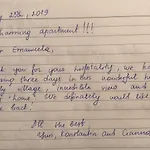 25th, 2019
Charming apartment!!!
Emanuele,
you for your hospitality, we had
three days in this wonderful
village, incredible view and
home. We definately would like
back!
All the best,
and